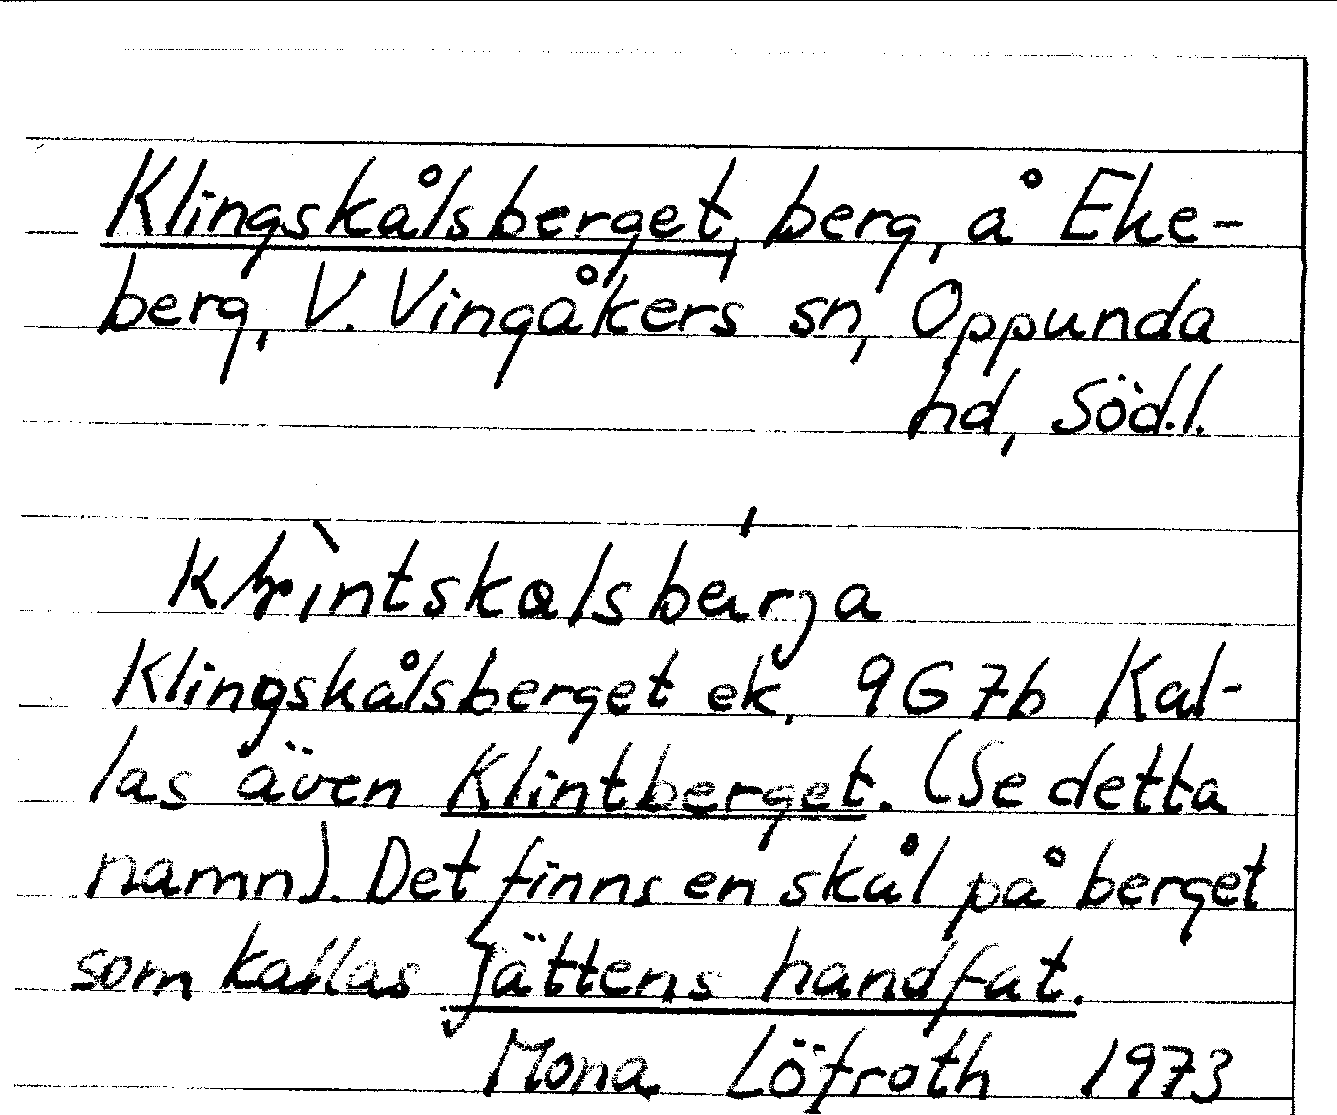 Klingskålsberget, berg, å Eke-
berg, V. Vingåkers sn, Oppunda
hd, Söd.l.
Klingskålsberget ek. 9G7b Kal-
las även Klintberget. (Se detta
namn). Det finns en skål på berget
som kallas Jättens handfat.
Mona Löfroth 1973